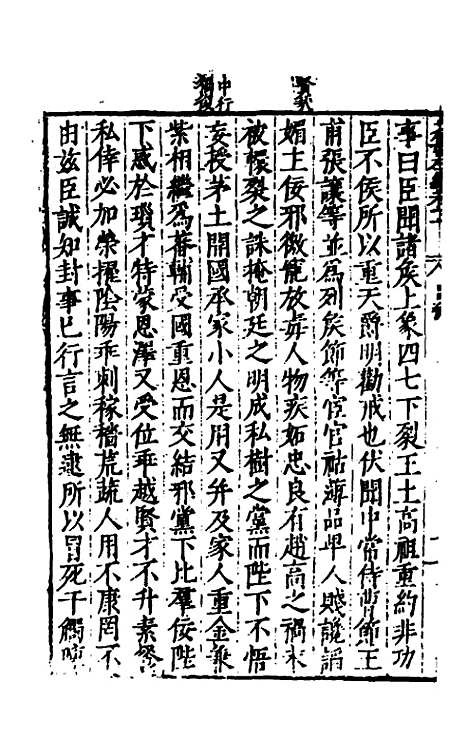 事曰臣聞諸侯上象四七下裂王土高祖重約非功
臣不侯所以重天爵明勸戒也伏聞中常侍曹節王
甫張讓等並爲列矦節等宦官祜薄品卑人賤讒謟
媚主佞邪徼寵放毒人物疾妬忠良有趙高之禍未
被轘裂之誅掩朝廷之明成私樹之黨而陛下不悟
妄授茅土開國承家小人是用又并及家人重金兼
紫相繼爲蕃輔受國重恩而交結邪黨下比羣佞陛
下惑於瑣才特蒙恩澤又受位乖越賢才不升素餐
私倖必加榮擢陰陽乖刺稼穡荒蔬人用不康罔不
由兹臣誠知封事已行言之無逮所以冒死干觸陳